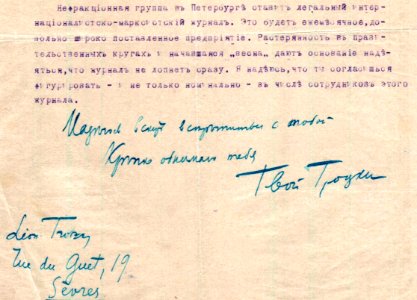 Нефракціонная группа въ Петероургѣ ставитъ легальный интер-
націоналистско-марксистскій журналъ. Это будетъ ежемѣсячное, до-
вольно широко поставленное предпріятіе. Растерянность въ прави-
тельственныхъ кругахъ и начавшаяся „весна„ даютъ основаніе надѣ-
яться, что журналъ не лопнетъ сразу. Я надѣюсь, что ты согласишься
фигурировать - и не только номинально - въ числѣ сотрудниковъ этого
журнала.
Надѣюсь вскорѣ встрѣтиться с тобой
Крѣпко обнимаю тебя
Твой Троцкий
Léon Trotzky
Rue du Guet, 19
Sèvres